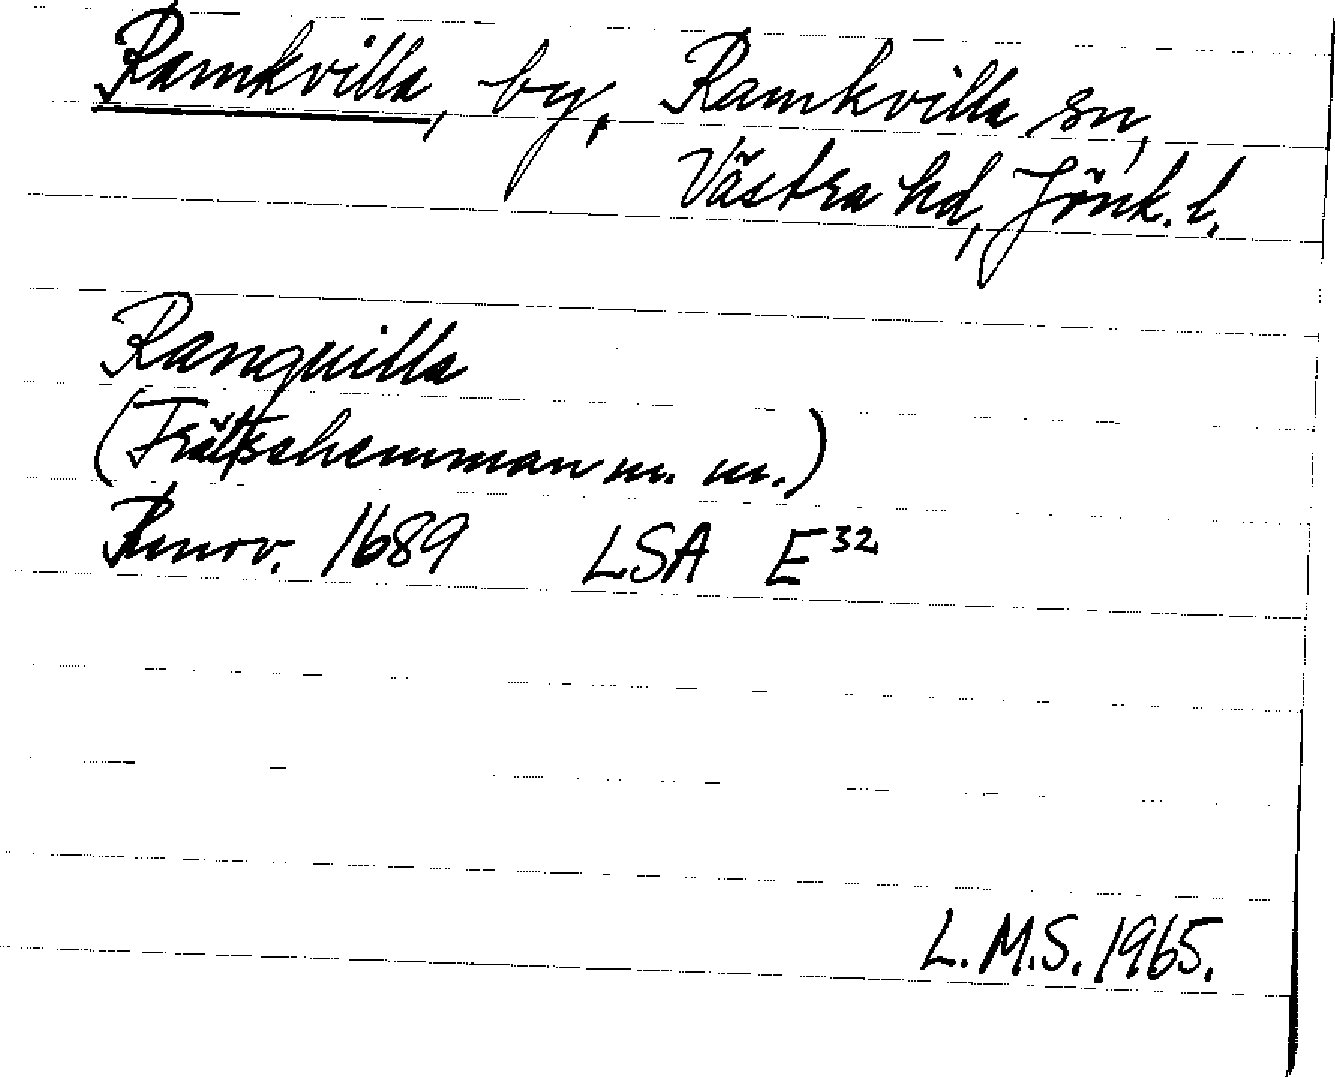 Ramkvilla, by, Ramkvilla sn,
Västra hd, Jönk. l.
Ranquilla
(Frälsehemman m. m.)
Renov. 1689 LSA E³²
L.M.S. 1965.